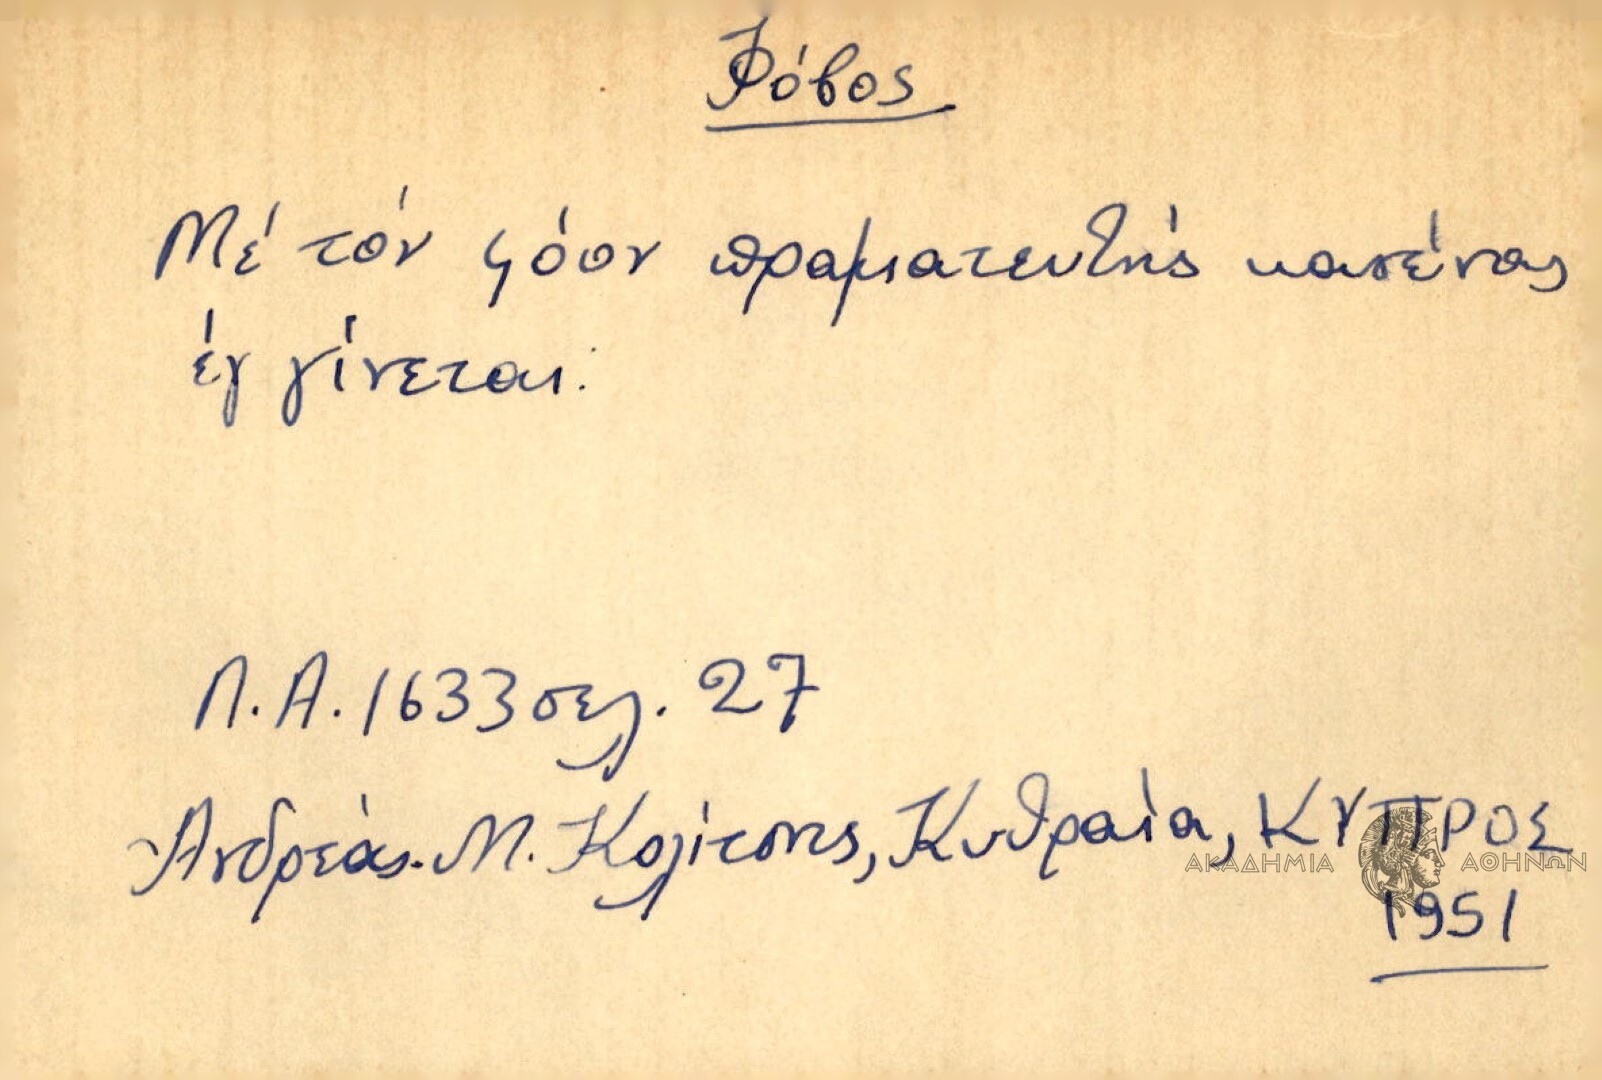 Φόβος
Μέ τόν φόον πραματευτής κανένας
έγ γίνεται.
Λ.Α. 1633 σελ. 27
Ανδρέας Μ. Κολίτσης, Κυθραία, ΚΥΠΡΟΣ
ΑΚΑΔΗΜΙΑ ΑΘΗΝΩΝ
1951